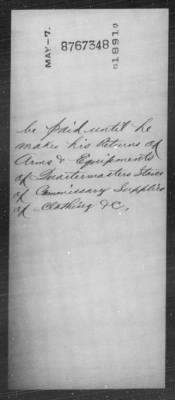 MAY-7.
8767348
1891
be paid until he
makes his Returns of
Arms & Equipments
of Quartermasters Stores
of Commissary Supplies
of Clothing &C.